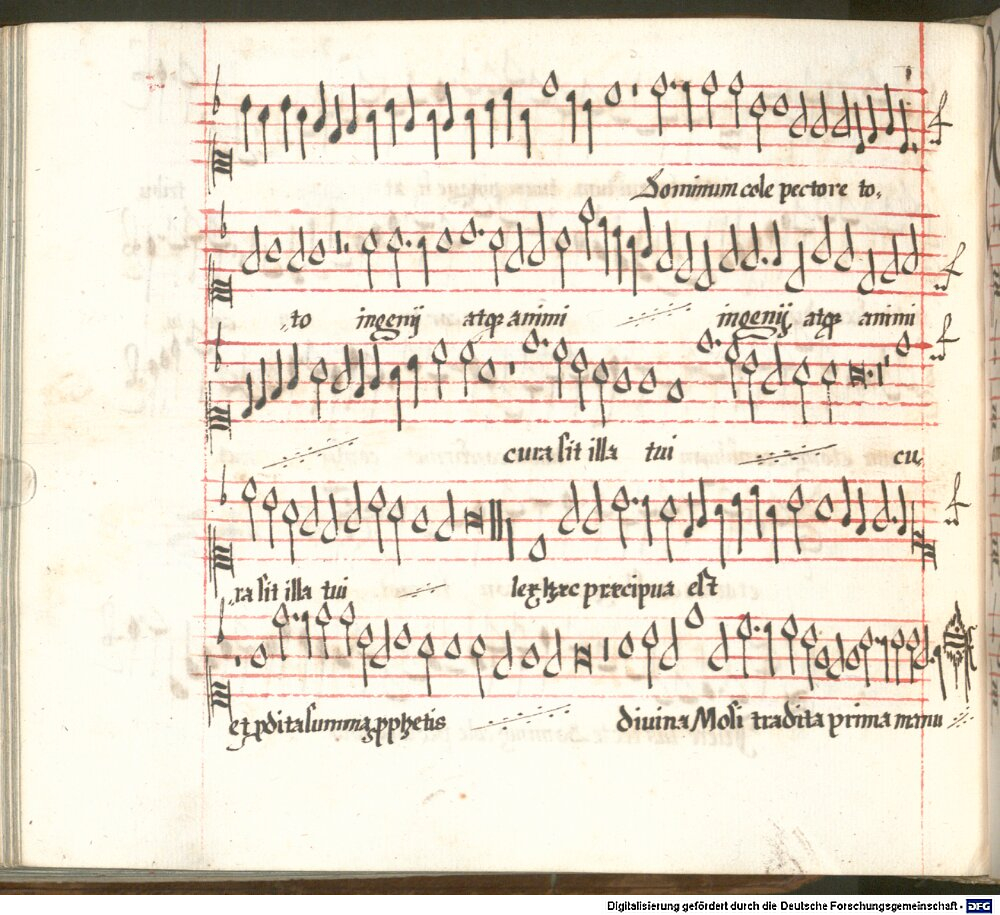 Dominum cole pectore to,
,,to ingenij atqz animi ingenij atqz animi
cura sit illa tui cu,
,,ra sit illa tui lex hæc præcipua est
et pdita summa pphetis divina Mosi tradita prima manu
Digitalisierung gefördert durch die Deutsche Forschungsgemeinschaft - DFG